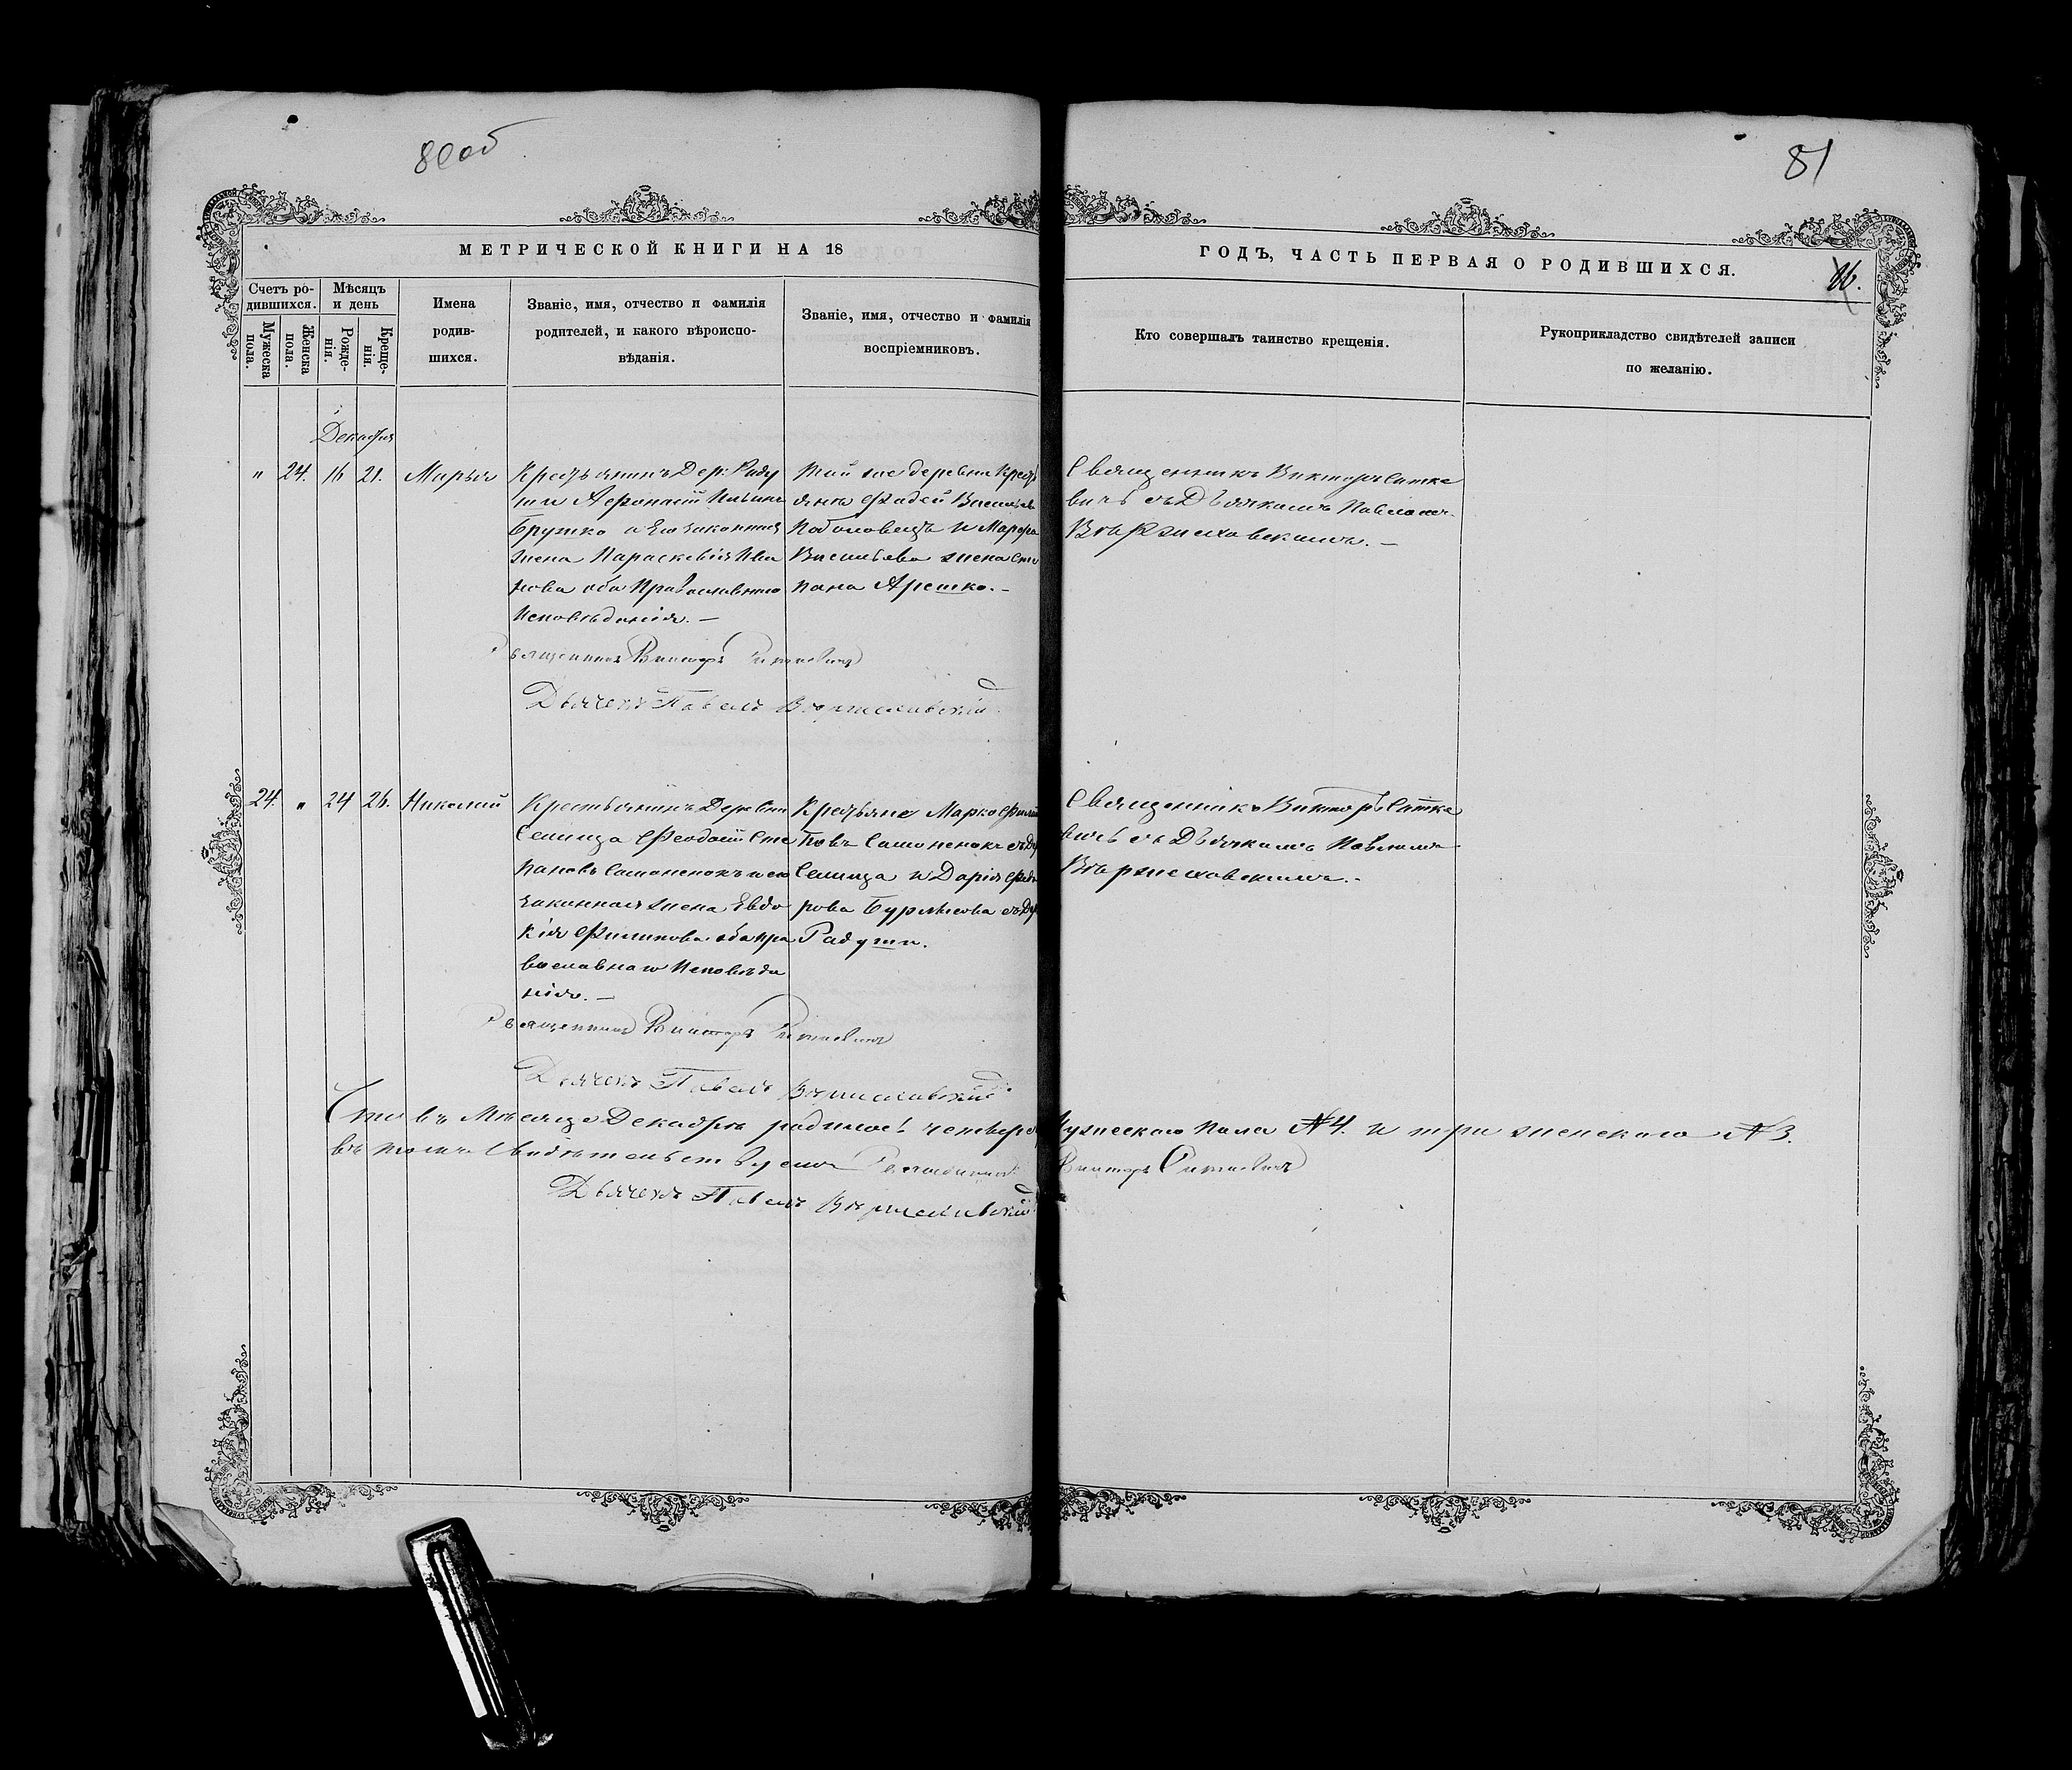 80об
81
МЕТРИЧЕСКОЙ КНИГИ НА 18
ГОДЪ, ЧАСТЬ ПЕРВАЯ О РОДИВШИХСЯ.
Счетъ ро-
дившихся.
Мужеска
пола.
Женска
пола.
Мѣсяцъ
и день
Рожде-
нія.
Креще-
нія.
Имена
родив-
шихся.
Званіе, имя, отчество и фамилія
родителей, и какого вѣроиспо-
вѣданія.
Званіе, имя, отчество и фамилія
воспріемниковъ.
Кто совершалъ таинство крещенія.
Рукоприкладство свидѣтелей записи
по желанію.
Декабря
" 24. 16 21. Марья
Крестьянинъ Дер: Раду
ши Афонасій Ильинъ
Брутко и Его законная
жена Параскевія Ива
нова оба Православнаго
Исповѣданія. —
Той же деревни Крестъ
янъ Фадей Василь
и Марфа
Васильева жена Сте
пана Арешко. —
Священникъ Викторъ Ситке
вичъ съ Дьячкомъ Павломъ
Вержеховскимъ. —
Священникъ Викторъ Ситкевичъ
Дьячекъ Павелъ Вержеховскій
24. " 24 26. Николай
Крестьянинъ Деревни
Селища Феодосій Сте
пановъ Самоненокъ и его
законная жена Евдо
кія Филипова оба пра
вославнаго Исповѣда
нія. —
Крестьяне Марко Фили
повъ Самоненокъ съ Д
Селища и Дарія
рова съ Дер
Радуши.
Священникъ Викторъ Ситке
вичъ съ Дьячкомъ Павломъ
Вержеховскимъ. —
Священникъ Викторъ Ситкевичъ
Дьячекъ Павелъ Вержеховскій
Что въ Мѣсяце Декабрѣ родилось четверо Мужескаго пола №4. и три женскаго №3.
въ томъ Свидѣтельствуемъ Священникъ Викторъ Ситкевичъ
Дьячекъ Павелъ Вержеховскій